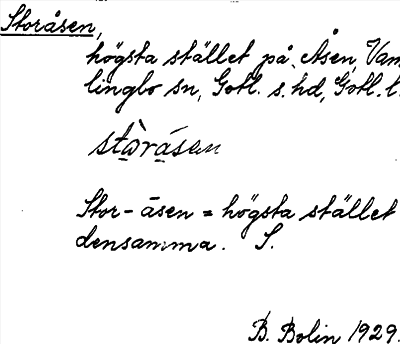 Storåsen,
högsta stället på Åsen, Vam-
lingbo sn, Gotl. s. hd, Gotl. l.
stòråsen
Stor-åsen = högsta stället
densamma. S.
B. Bolin 1929.